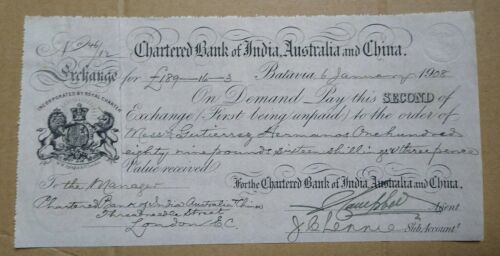 Chartered Bank of India, Australia and China.
Exchange for £189-16-3 Batavia 6 January 1908
INCORPORATED BY ROYAL CHARTER
On Demand Pay this SECOND of
Exchange (First being unpaid) to the order of
Gutierrez Hermanos One hundred
eighty nine pounds sixteen shillings & three pence
Value received
To the Manager For the Chartered Bank of India, Australia and China.
Chartered Bank of India Australia & China
Threadneedle Street Agent.
London E.C. Sub Account.